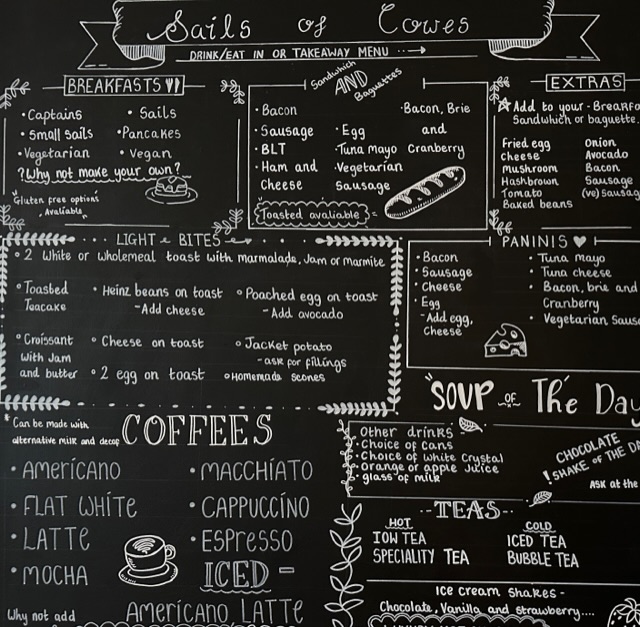 Sails of Cowes
DRINK/EAT IN OR TAKEAWAY MENU
BREAKFASTS
• Captains
• Small Sails
• Vegetarian
• Sails
• Pancakes
• Vegan
? Why not make your own?
Gluten free options
Avaliable
Sandwhich
AND
Baguettes
• Bacon
• Sausage
• BLT
• Ham and
Cheese
• Egg
• Tuna mayo
• Vegetarian
Sausage
• Bacon, Brie
and
Cranberry
Toasted avaliable
EXTRAS
Add to your - Breakfa
Sandwhich or baguette.
Fried egg
Cheese
Mushroom
Hashbrown
Tomato
Baked beans
Onion
Avocado
Bacon
Sausage
(ve) Sausag
LIGHT BITES
• 2 White or wholemeal toast with marmalade, Jam or marmite
• Toasted
Teacake
• Heinz beans on toast
- Add cheese
• Poached egg on toast
- Add avocado
• Croissant
with Jam
and butter
• Cheese on toast
• 2 egg on toast
• Jacket potato
- ask for fillings
• Homemade scones
PANINIS
• Bacon
• Sausage
• Cheese
• Egg
- Add egg,
Cheese
• Tuna mayo
• Tuna cheese
• Bacon, brie and
Cranberry
• Vegetarian Saus
"SOUP OF The Day
* Can be made with
alternative milk and decaf
COFFEES
• AMERICANO
• FLAT WHITE
• LATTE
• MOCHA
• MACCHIATO
• CAPPUCCINO
• ESPRESSO
ICED -
Americano LATTE
Why not add
Other drinks -
Choice of cans
Choice of White Crystal
Orange or apple Juice
glass of milk
CHOCOLATE
! SHAKE OF THE DA
ASK at the
TEAS
HOT
IOW TEA
SPECIALITY TEA
COLD
ICED TEA
BUBBLE TEA
Ice cream shakes -
Chocolate, Vanilla and strawberry....